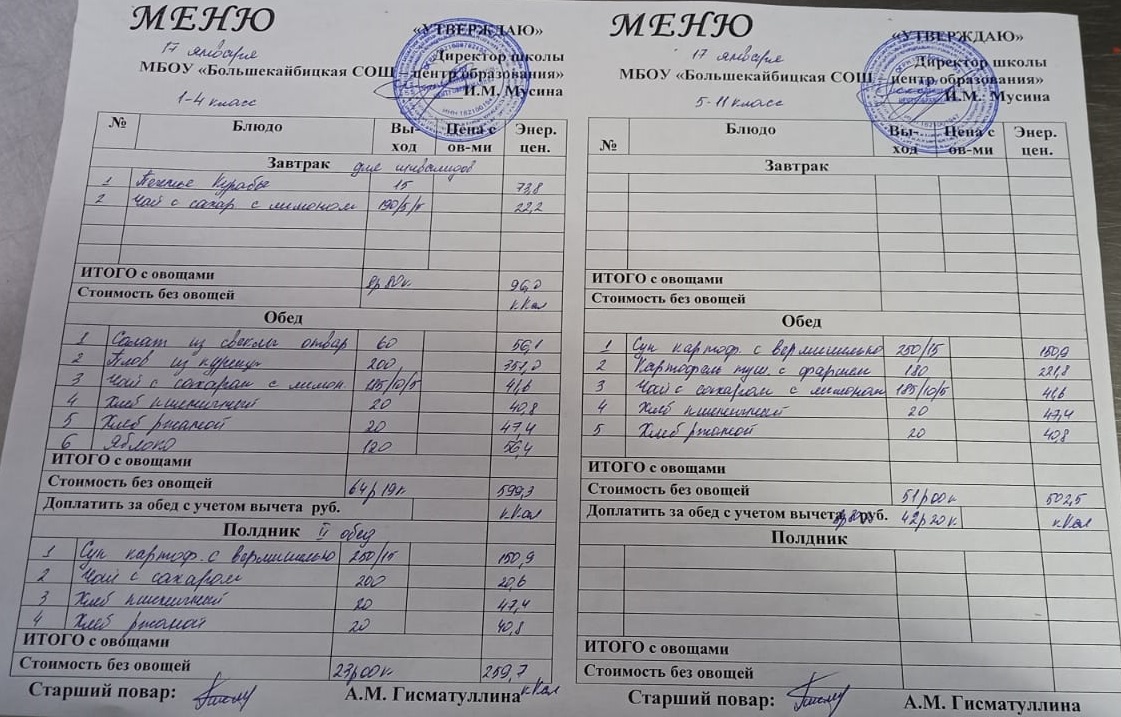 МЕНЮ
«УТВЕРЖДАЮ»
17 января
Директор школы
МБОУ «Большекайбицкая СОШ – центр образования»
И.М. Мусина
1-4 класс
№ Блюдо Вы-ход Цена с ов-ми Энер. цен.
Завтрак для инвалидов
1 Печенье Курабье 15 73,8
2 Чай с сахар с лимоном 190/5/5 22,2
ИТОГО с овощами 8р 80к. 96,0
Стоимость без овощей кКал
Обед
1 Салат из свеклы отвар 60 56,1
2 Плов из курицы 200 357,0
3 Чай с сахаром с лимон. 185/10/5 41,6
4 Хлеб пшеничный 20 40,8
5 Хлеб ржаной 20 47,4
6 Яблоко 120 56,4
ИТОГО с овощами
Стоимость без овощей 64р 19к 599,3
Доплатить за обед с учетом вычета руб. кКал
Полдник II обед
1 Суп картоф. с вермишелью 250/15 150,9
2 Чай с сахаром 200 20,6
3 Хлеб пшеничный 20 47,4
4 Хлеб ржаной 20 40,8
ИТОГО с овощами
Стоимость без овощей 23р00к 259,7
кКал
Старший повар: А.М. Гисматуллина
МЕНЮ
«УТВЕРЖДАЮ»
17 января
Директор школы
МБОУ «Большекайбицкая СОШ – центр образования»
И.М. Мусина
5-11 класс
№ Блюдо Вы-ход Цена с ов-ми Энер. цен.
Завтрак
ИТОГО с овощами
Стоимость без овощей
Обед
1 Суп картоф. с вермишелью 250/15 150,9
2 Картофель туш. с фаршем 180 221,8
3 Чай с сахаром с лимоном 185/10/5 41,6
4 Хлеб пшеничный 20 47,4
5 Хлеб ржаной 20 40,8
ИТОГО с овощами
Стоимость без овощей 51р00к 502,5
Доплатить за обед с учетом вычета 8р80к руб. 42р20к. кКал
Полдник
ИТОГО с овощами
Стоимость без овощей
Старший повар: А.М. Гисматуллина